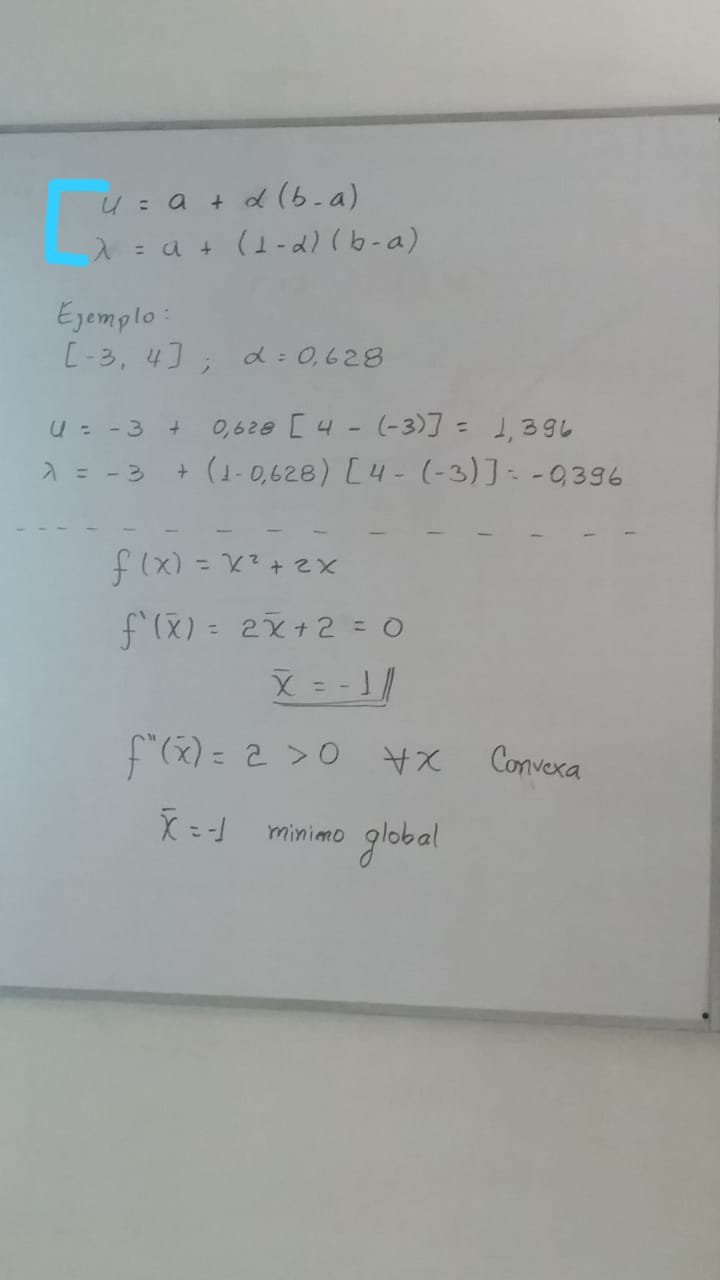 u = a + α(b-a)
λ = a + (1-α)(b-a)
Ejemplo:
[-3, 4] ; α = 0,628
u = -3 + 0,628 [4 - (-3)] = 1,396
λ = -3 + (1-0,628) [4 - (-3)] = -0,396
f(x) = x² + 2x
f'(x̄) = 2x̄ + 2 = 0
x̄ = -1//
f"(x̄) = 2 > 0 ∀x Convexa
x̄ = -1 minimo global